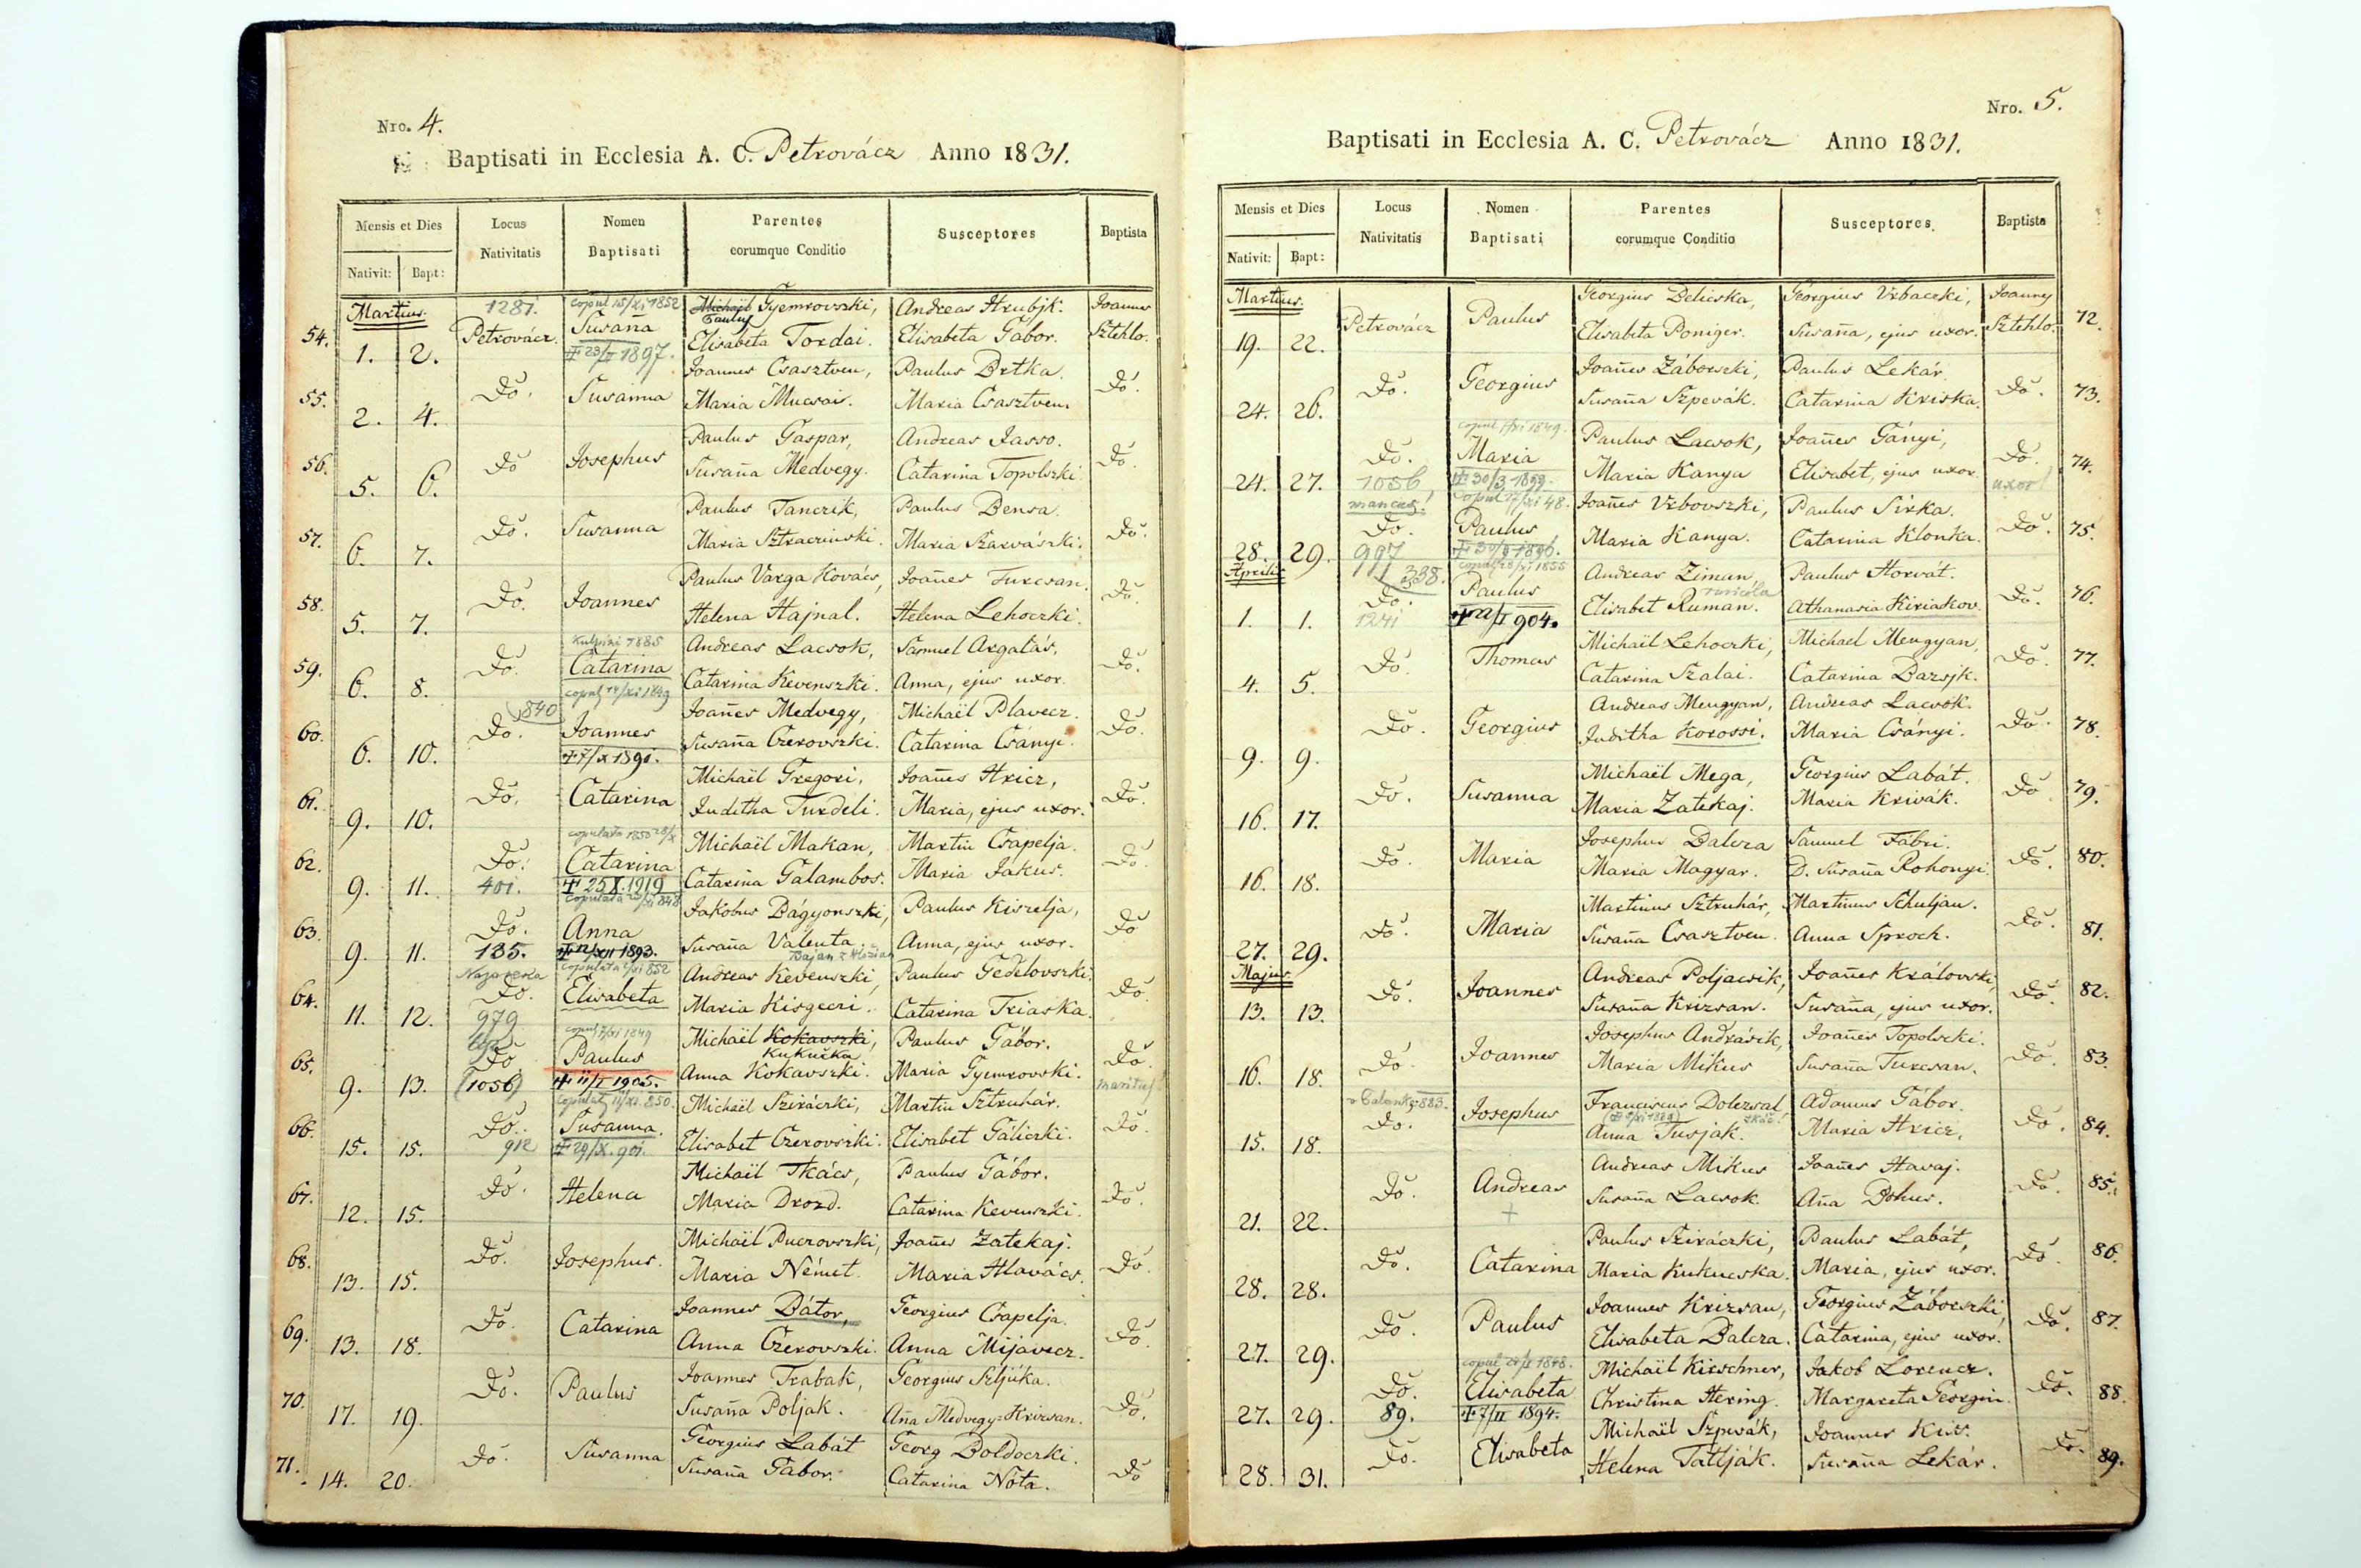 Nro. 4.
Baptisati in Ecclesia A. C. Petrovácz Anno 1831.
Mensis et Dies Locus Nativitatis Nomen Baptisati Parentes eorumque Conditio Susceptores Baptista
Nativit: Bapt:
Martius. 1281. copul 15/xi 1852 Michaël Gyemrovszki, Andreas Hrubjk. Joannes
Paulus
54. 1. 2. Petrovácz. Susana Elisabeta Tordai. Elisabeta Gabor. Sztehlo.
1897.
Joannes Csasztven, Paulus Brtka.
55. 2. 4. Do. Susanna Maria Mucsais. Maria Csasztven. Do.
Paulus Gaspar, Andreas Jasso.
56. 5. 6. Do Josephus Susana Medvegy. Catarina Topolszki. Do.
Paulus Tanczik, Paulus Bensa.
57. 6. 7. Do. Susanna Maria Sztraczinski. Maria Szarvászki. Do.
Paulus Varga Kovács, Joanes Turcsan.
58. 5. 7. Do. Joannes Helena Hajnal. Helena Lehoczki. Do.
1885 Andreas Lacsok, Samuel Argalás,
59. 6. 8. Do. Catarina Catarina Kevenszki. Anna, ejus uxor. Do.
copul 14/xi 1849
840 Joanes Medvegy, Michaël Plavecz.
60. 6. 10. Do. Joannes Susana Czerovszki. Catarina Csányi. Do.
Michaël Gregori, Joanes Hricz,
61. 9. 10. Do. Catarina Juditha Turdeli. Maria, ejus uxor. Do.
copulata 1850 Michaël Makan, Martin Csapelja.
62. 9. 11. Do. Catarina Catarina Galambos. Maria Jakus. Do.
401. 25 X. 1919
copulata Jakobus Bágyonszki, Paulus Kiszelja,
63. 9. 11. Do. Anna Susana Valenta. Anna, ejus uxor. Do
135. 12/XII 1893.
copulata 852 Andreas Kevenszki, Paulus Gedelovszki.
64. 11. 12. Do. Elisabeta Maria Kisgeczi. Catarina Triaska. Do.
979
copul 1849 Michaël Kokavszki, Paulus Gábor.
Kukučka
65. 9. 13. Do Paulus Anna Kokavszki. Maria Gyemrovski. Do.
(1056) 11/I 1905. maritus
Copulata 11/xi. 850. Michaël Sziráczki, Martin Sztruhár.
66. 15. 15. Do. Susanna. Elisabet Czerovszki. Elisabet Gáliczki. Do.
912 29/X. 901.
Michaël Tkács, Paulus Gábor.
67. 12. 15. Do. Helena Maria Drozd. Catarina Kevenszki. Do.
Michaël Puczovszki, Joanes Zatekaj.
68. 13. 15. Do. Josephus. Maria Német. Maria Hlavács. Do.
Joannes Bátor, Georgius Csapelja.
69. 13. 18. Do. Catarina Anna Czerovszki. Anna Mijavecz. Do.
Joannes Trabak, Georgius Szljúka.
70. 17. 19. Do. Paulus Susana Poljak. Ana Medvegy=Krizsan. Do.
Georgius Labát Georg Boldoczki.
71. 14. 20. Do. Susanna Susana Gabor. Catarina Nóta. Do
Nro. 5.
Baptisati in Ecclesia A. C. Petrovácz Anno 1831.
Mensis et Dies Locus Nativitatis Nomen Baptisati Parentes eorumque Conditio Susceptores Baptista
Nativit: Bapt:
Martius. Georgius Belicska, Georgius Vrbaczki, Joannes
19. 22. Petrovácz Paulus Elisabeta Poniger. Susana, ejus uxor. Sztehlo. 72.
Joanes Záborszki, Paulus Lekár.
24. 26. Do. Georgius Susana Szpevák. Catarina Kriska. Do. 73.
copul 1849. Paulus Lacsok, Joanes Gányi,
24. 27. Do. Maria Maria Kanya Elisabet, ejus uxor. Do. 74.
1056 30/3 1899. uxor
mancus! copul 17/xi 48. Joanes Vrbovszki, Paulus Sirka.
28. 29. Do. Paulus Maria Kanya. Catarina Klonka. Do. 75.
997 1896.
Aprilis 338. copul 1855 Andreas Ziman, Paulus Horvát.
ruricola
1. 1. Do. Paulus Elisabet Ruman. Athanasia Kiriakov. Do. 76.
1241 904.
Michaël Lehoczki, Michael Mengyan,
4. 5. Do. Thomas Catarina Szalai. Catarina Bazsjk. Do. 77.
Andreas Mengyan, Andreas Lacsok.
9. 9. Do. Georgius Juditha Korossi. Maria Csányi. Do. 78.
Michaël Mega, Georgius Labát.
16. 17. Do. Susanna Maria Zatekaj. Maria Krivák. Do 79.
Josephus Balcza Samuel Fábri.
16. 18. Do. Maria Maria Magyar. D. Susana Rohonyi. Do. 80.
Martinus Sztruhár, Martinus Schuljan.
27. 29. Do. Maria Susana Csasztven. Anna Sproch. Do. 81.
Majus. Andreas Poljacsik, Joanes Královski,
13. 13. Do. Joannes Susana Krizsan. Susana, ejus uxor. Do. 82.
Josephus Andrásik, Joanes Topolszki.
16. 18. Do. Joannes Maria Mikus Susana Turcsan. Do. 83.
883. Franciscus Dolezsal, Adamus Gábor.
15. 18. Do. Josephus Anna Tusjak. Maria Hricz. Do. 84.
Andreas Mikus Joanes Havaj.
21. 22. Do. Andreas Susana Lacsok. Ana Bohus. Do. 85.
Paulus Sziráczki, Paulus Labát,
28. 28. Do. Catarina Maria Kukucska. Maria, ejus uxor. Do. 86.
Joannes Krizsan, Georgius Záborszki,
27. 29. Do. Paulus Elisabeta Balcza. Catarina, ejus uxor. Do. 87.
copul 1848. Michaël Kirschner, Jakob Lorencz.
27. 29. Do. Elisabeta Christina Hering. Margareta Georgin. Do. 88.
89. 7/II 1894.
Michaël Szpevák, Joannes Kris.
28. 31. Do. Elisabeta Helena Tatlják. Susana Lekár. Do. 89.